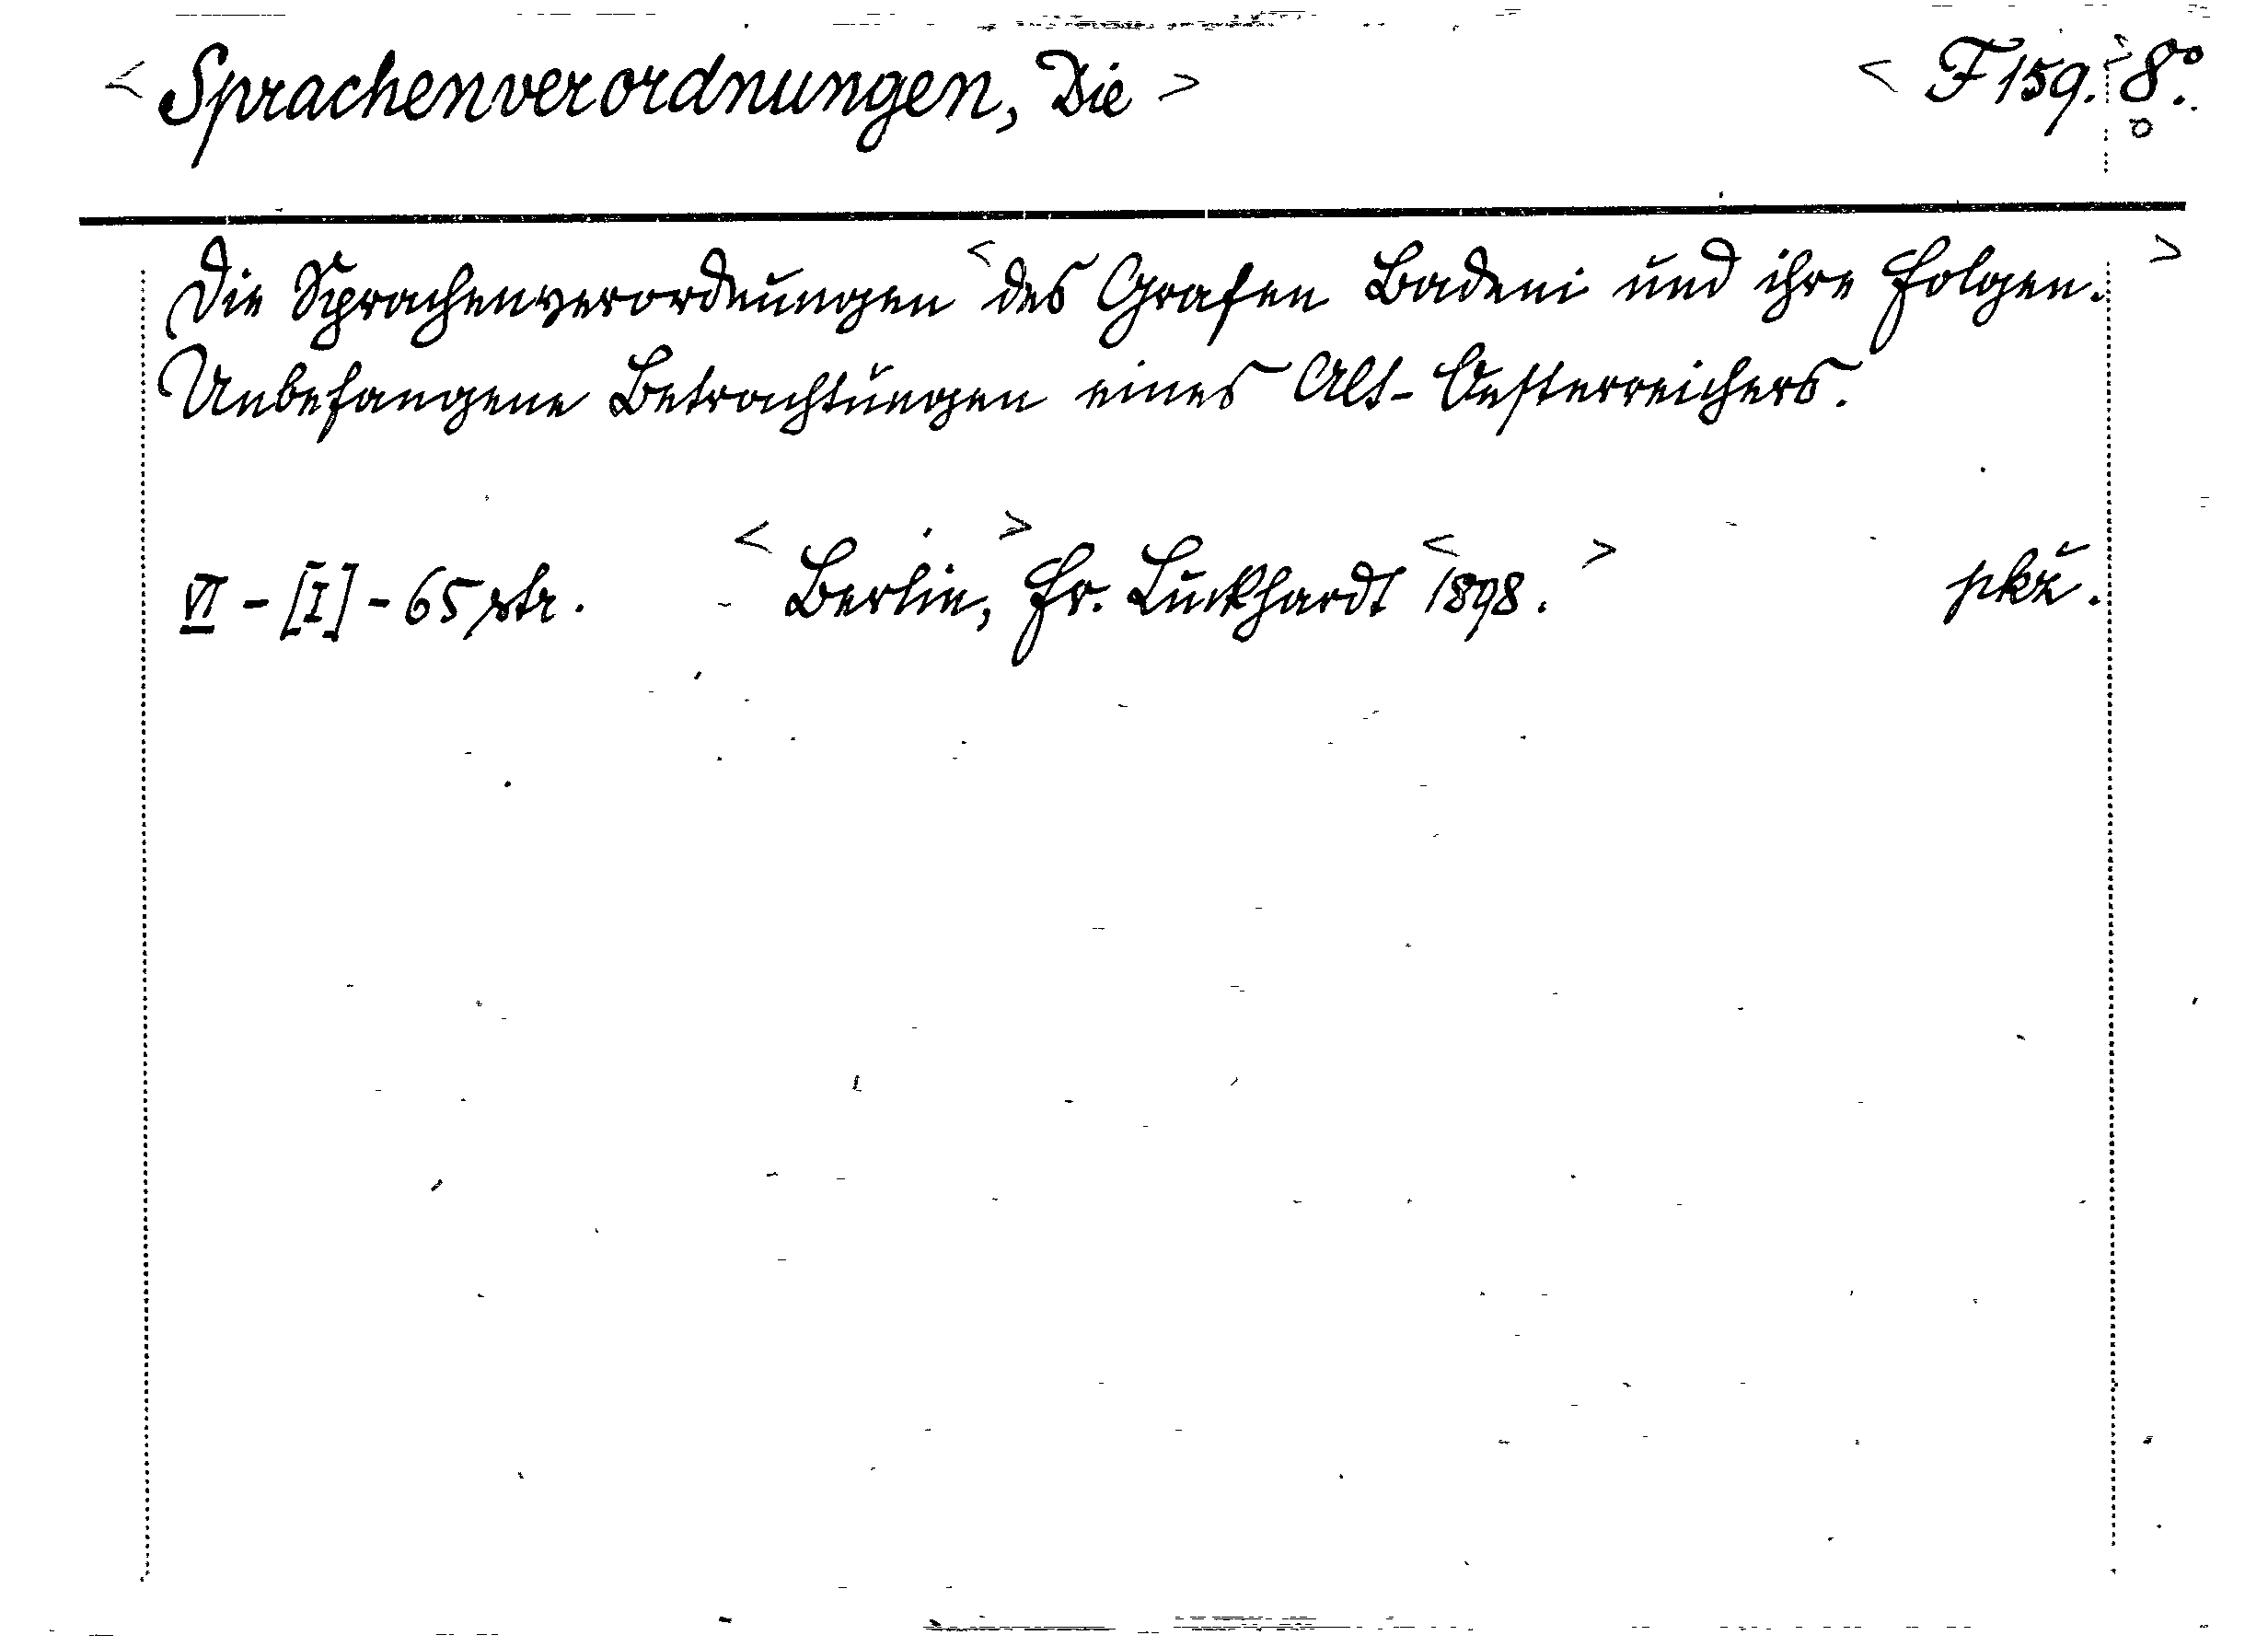 < Sprachenverordnungen, Die > < F 159. > 8°.
Die Sprachenverordnungen < des Grafen Badeni und ihre Folgen. >
Unbefangene Betrachtungen eines Alt-Oesterreichers.
VI - [I] - 65 str. < Berlin, > Fr. Luckhardt < 1898. > pkž.